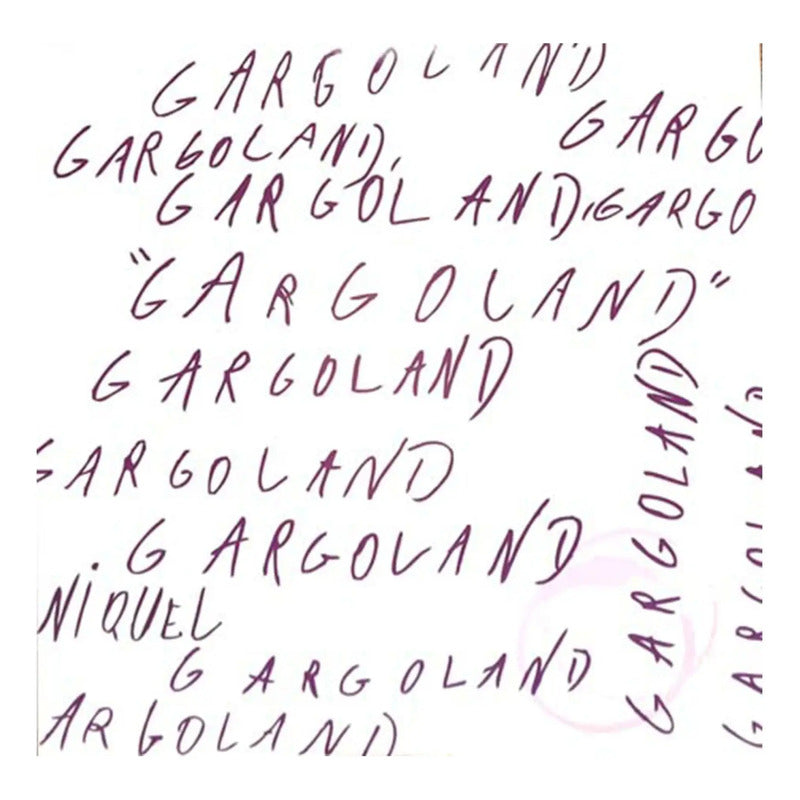 GARGOLAND
GARGO
GARGOLAND,
GARGOLAND, GARGO
"GARGOLAND"
GARGOLAND
GARGOLAND
. GARGOLAND
NIQUEL
GARGOLAND
ARGOLAND
GARGOLAND
GARGOLAND